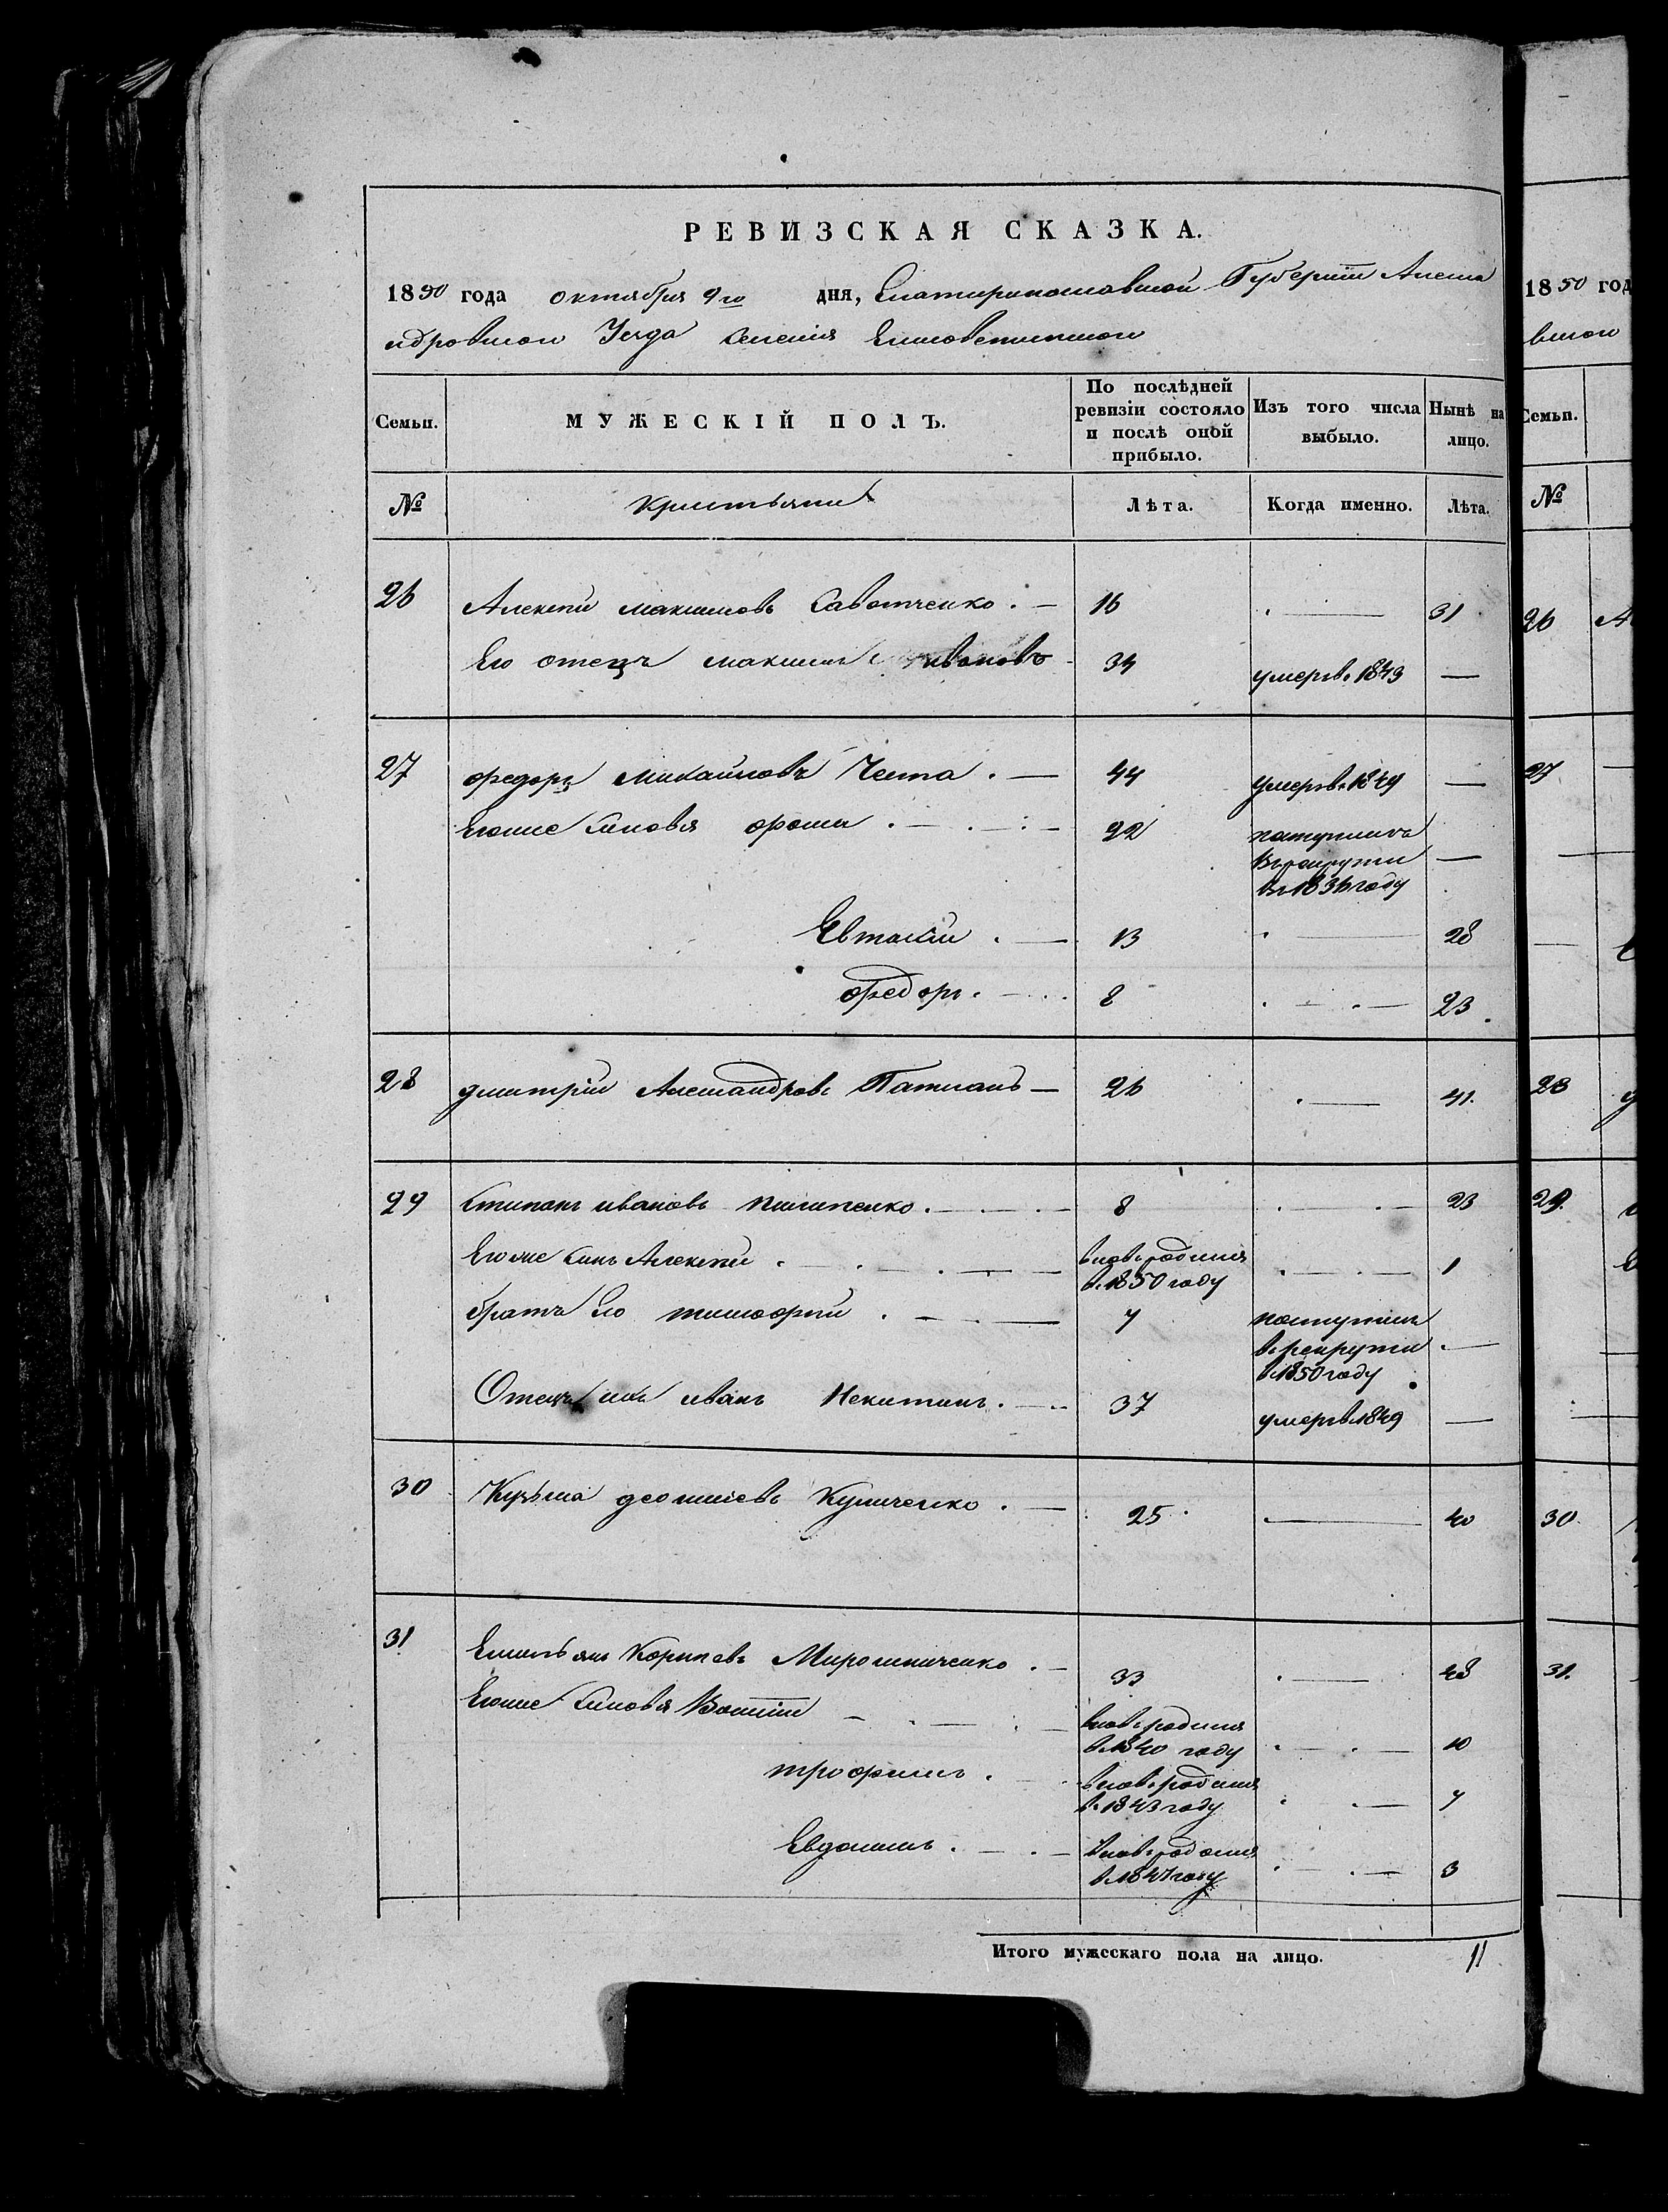 РЕВИЗСКАЯ СКАЗКА.
1850 года октября 9го дня, Екатеринославской Губернии Алекса
ндровскаго Уезда селения Елисоветинской
Семьи.
МУЖЕСКІЙ ПОЛЪ.
По послѣдней ревизіи состояло и послѣ оной прибыло.
Изъ того числа выбыло.
Нынѣ на лицо.
№
Крестьяне
Лѣта.
Когда именно.
Лѣта.
26 Алексей Максимовъ Савотченко. — 16 . — 31
Его отецъ Максимъ Ивановъ 34 умеръ в. 1843 —
27 Федоръ Михайловъ Чепа . — 44 умеръ в. 1849 —
Егоже Синовья Фома . — . — 22 поступилъ
в рекруты —
въ 1836 году
Евтакій . — 13 . — 28
Федоръ . — 8 . — . — 23
28 Дмитрій Александровъ Патланъ — 26 . — 41
29 Стипанъ Ивановъ Пилипенко . — 8 . — . — 23
Егоже Синъ Алексей . — вновь родился . — . — 1
в. 1850 году
братъ Его Тимофей . — 7 поступилъ
в. рекруты . —
в 1850 году
Отецъ ихъ Иванъ Некитинъ . — 37 умеръ в 1849 —
30 Кузьма Деонисіевъ Куличенко . — 25 . — 40
31 Емельянъ Карповъ Мирошниченко . — 33 . — 48
Егоже Синовья — вновь родился
в. 1840 году . — . — 10
Трофимъ . — вновь родился
в. 1843 году . — 7
Евдокимъ . — . — вновь родился
в. 1847 году . — . — 3
Итого мужескаго пола на лицо. 11
1850 год
Семьи.
№
26
27
28
29.
30
31.